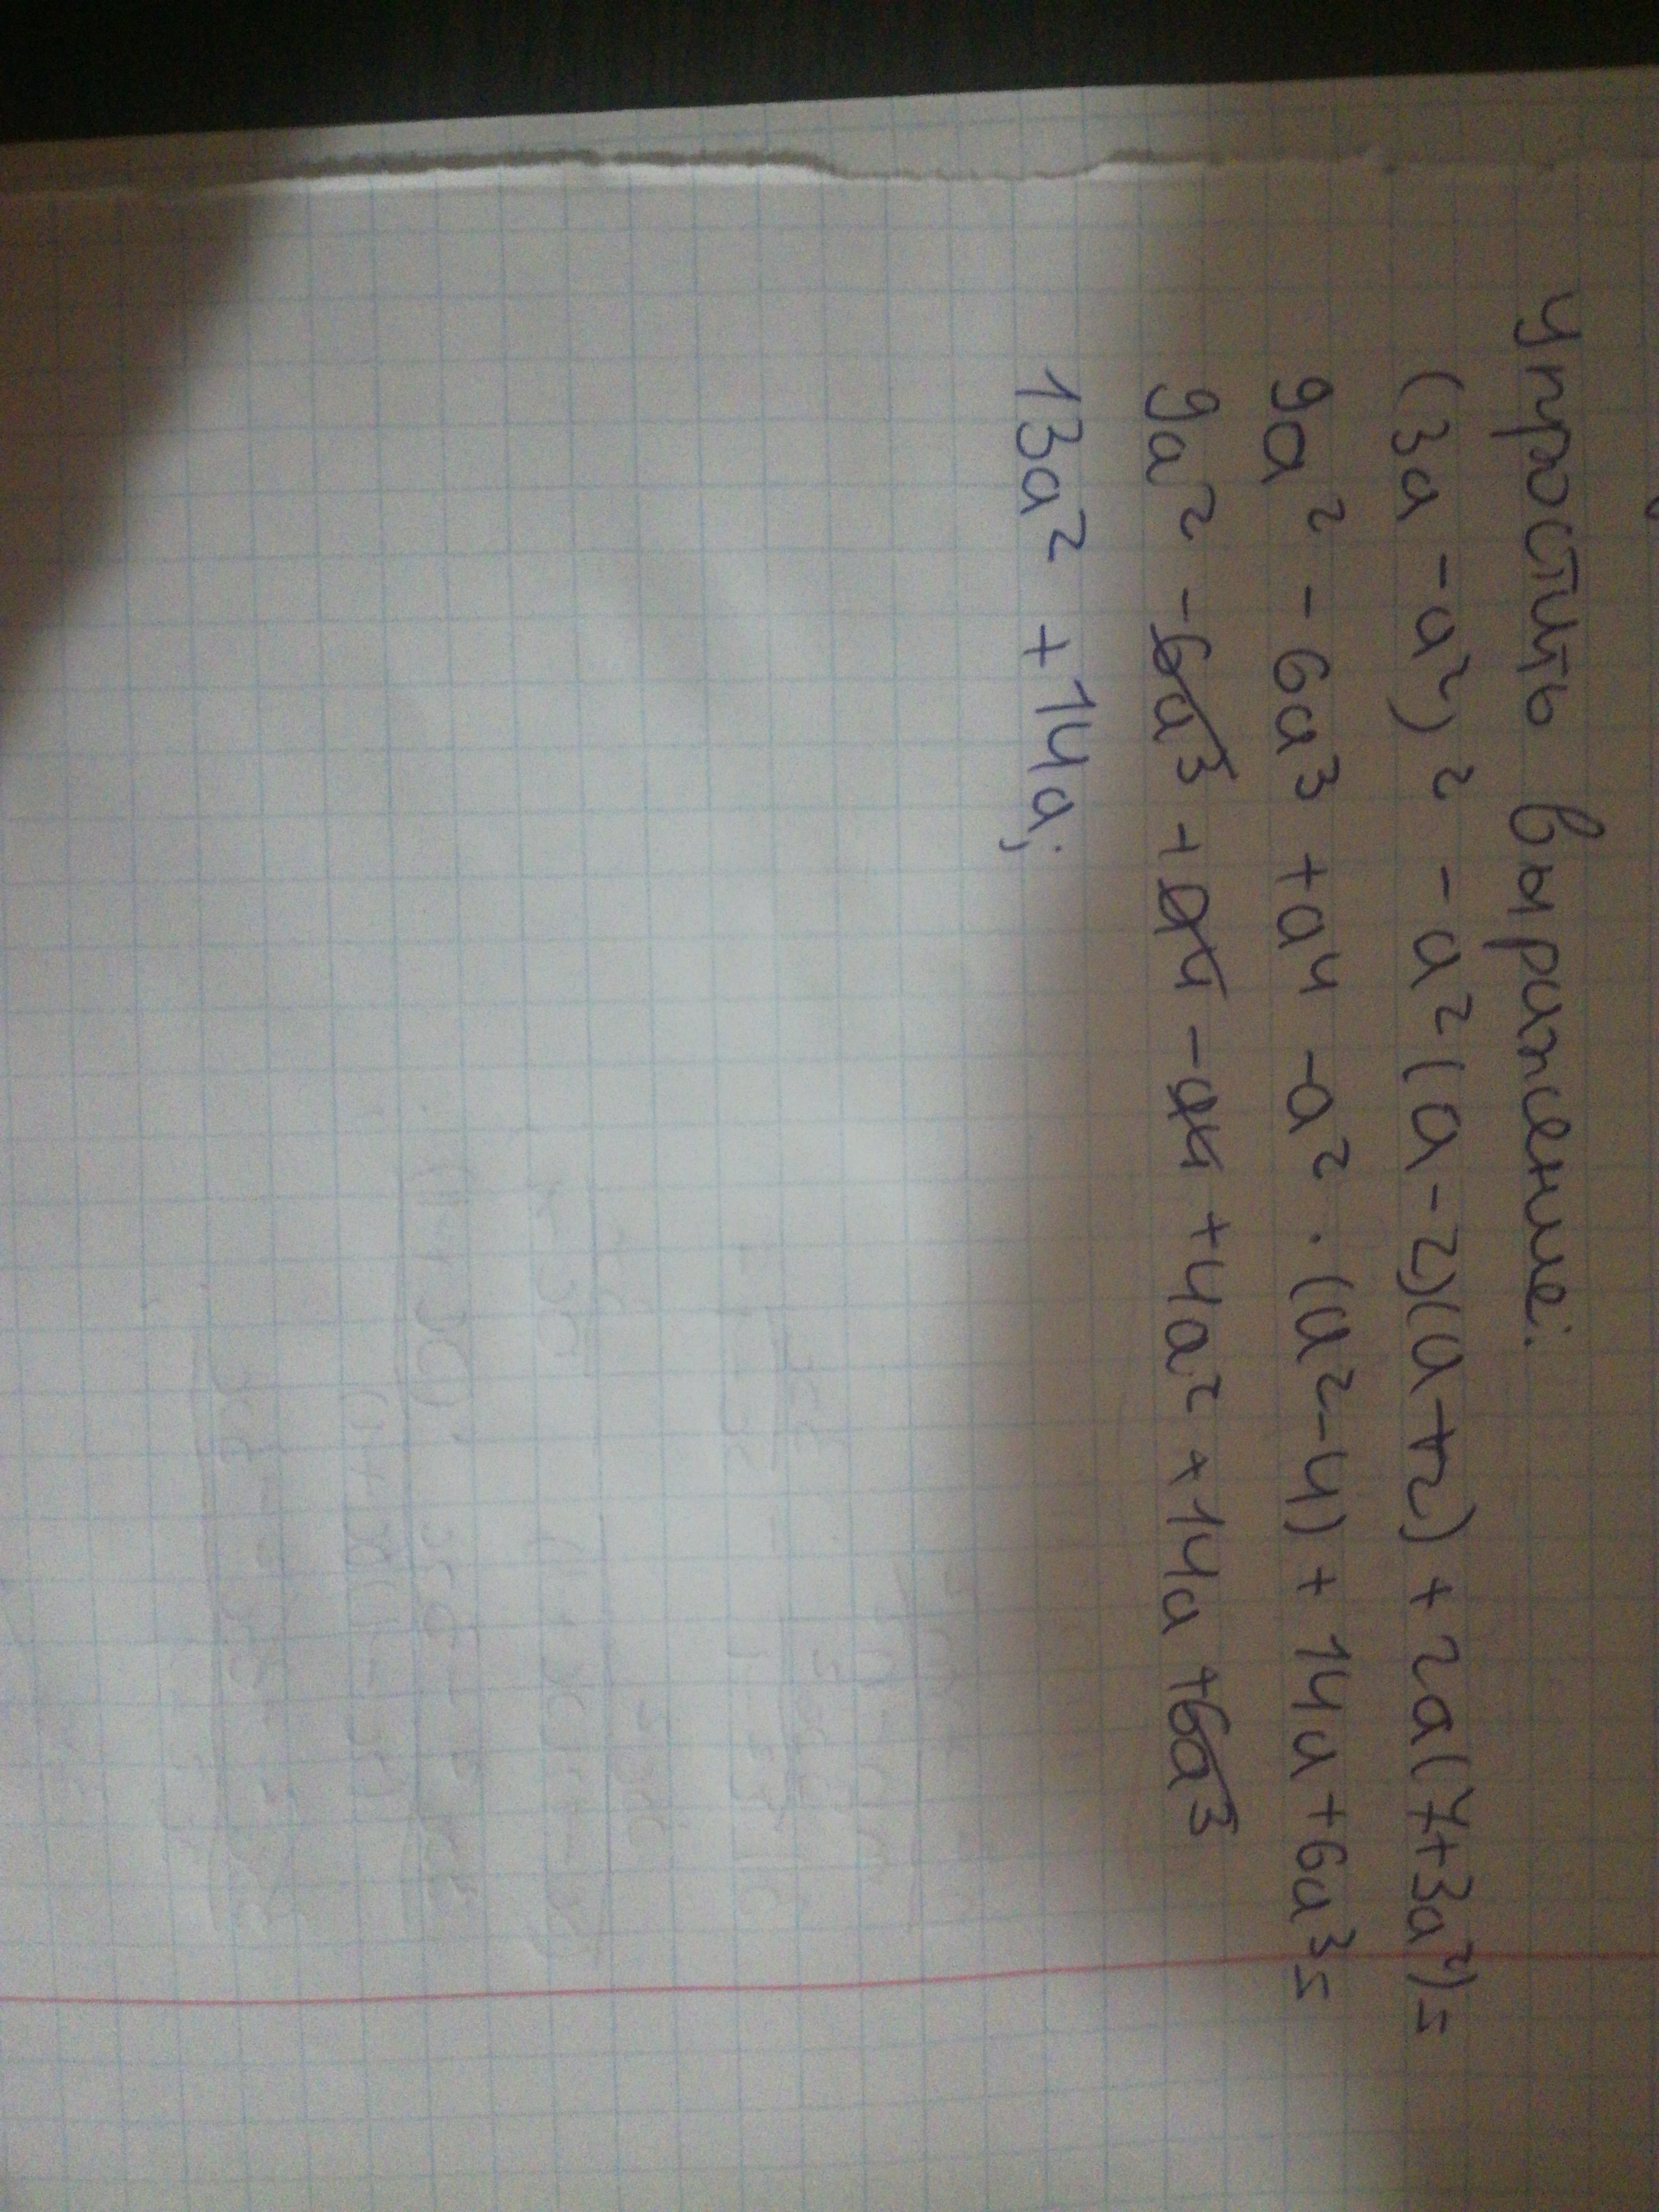 Упростить выражение:
(3a - a²)² - a²(a-2)(a+2) + 2a(7+3a²)=
9a² - 6a³ + a⁴ - a² · (a²-4) + 14a + 6a³=
9a² - 6a³ + a⁴ - a⁴ + 4a² + 14a + 6a³
13a² + 14a;